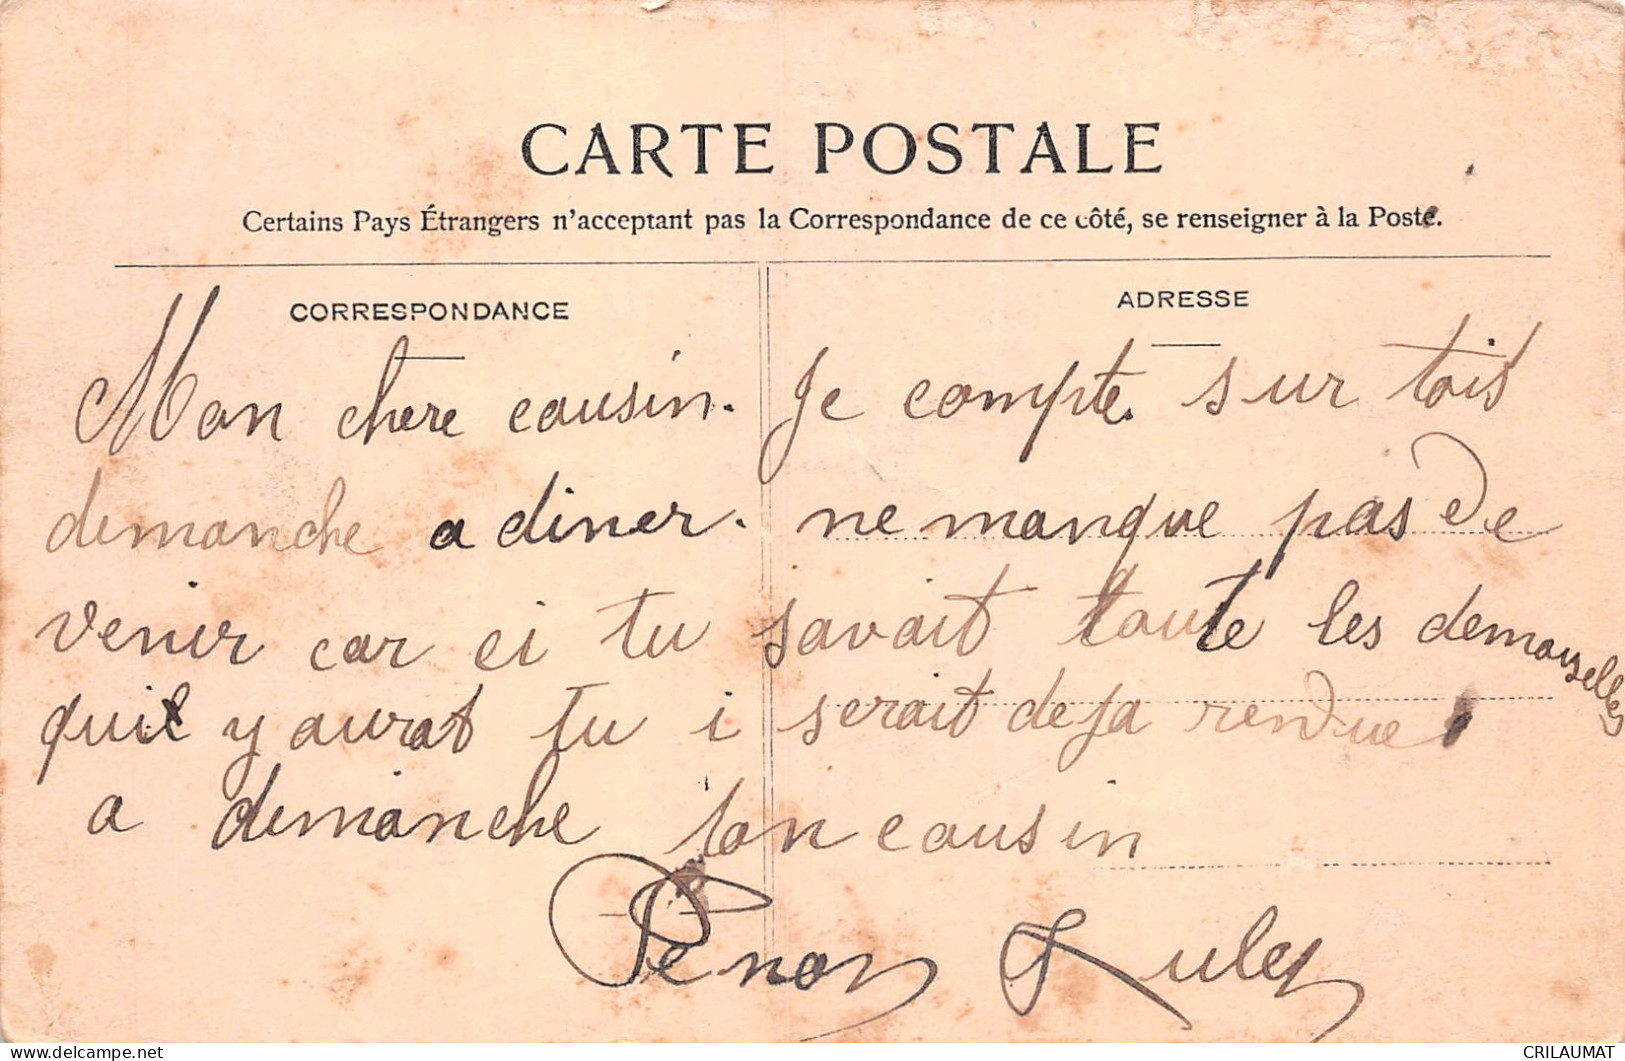 CARTE POSTALE
Certains Pays Étrangers n'acceptent pas la Correspondance de ce côté, se renseigner à la Poste.
CORRESPONDANCE
ADRESSE
Mon chere cousin. Je compte sur tois
demanche a diner. ne manque pas de
venir car ci tu savait toute les demouselles
quil y aurat tu i serait deja rendue
a demanche ton cousin
Penon
delcampe.net
CRILAUMAT